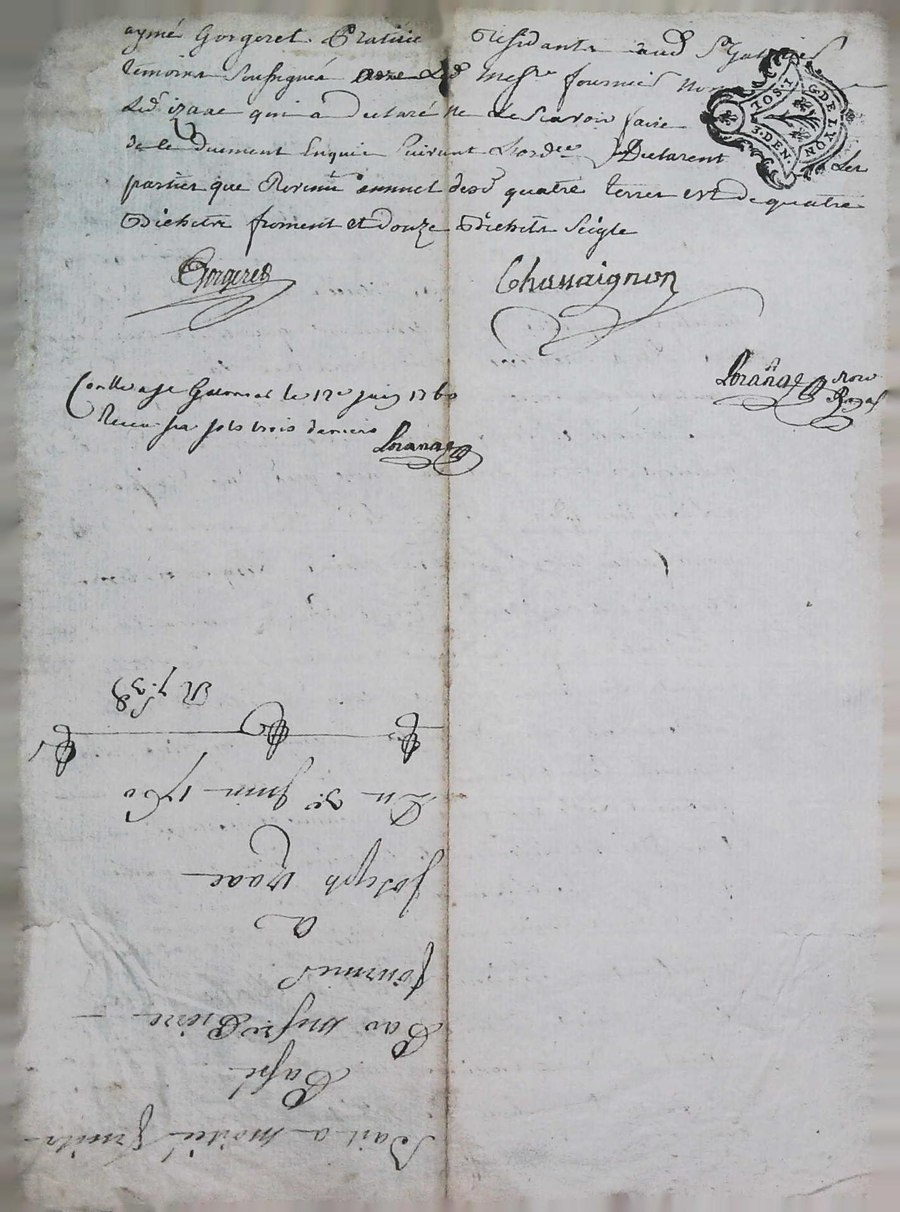 aymé Gorgeret Praticie residants aud St Galmier
témoins soussignés avec led messre fournier non
led izaac qui a declaré ne le scavoir faire
de ce duement Enquis suivant l'ordce Declarent Les
parties que Revenu annuel desd quatre terres est de quatre
Bichets froment et douze Bichets seigle
G. DE LYON
10 S. 1
3. DEN.
Gorgeret
Chassaignon
Lorange Nore Royal
Conlle a St Galmier le 12e juin 1760
Receu six sols trois deniers
Lorange
Bail a moitié fruits
Passé
Par messre Pierre
fournier
a
Joseph izaac
Du 3e Juin 1760